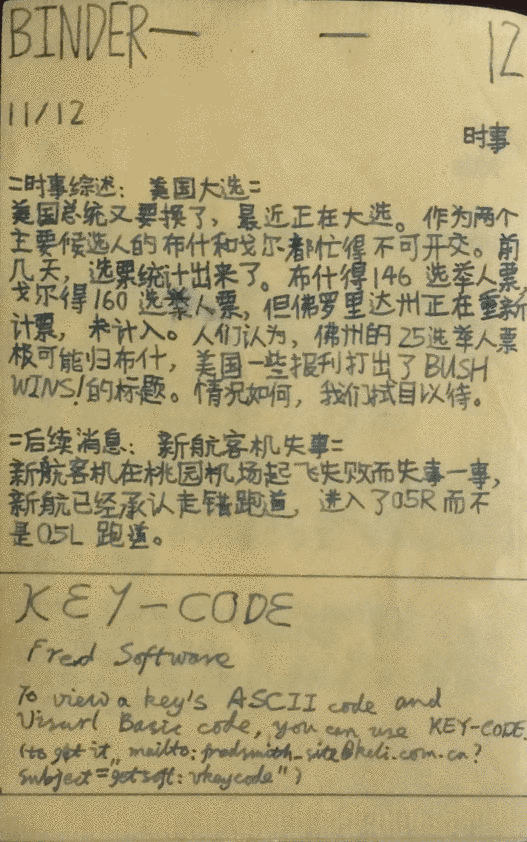 BINDER— — 12
11/12
时事
=时事综述: 美国大选=
美国总统又要换了, 最近正在大选。作为两个
主要候选人的布什和戈尔都忙得不可开交。前
几天, 选票统计出来了。布什得146选举人票,
戈尔得160选举人票, 但佛罗里达州正在重新
计票, 未计入。人们认为, 佛州的25选举人票
极可能归布什, 美国一些报刊打出了BUSH
WINS!的标题。情况如何, 我们拭目以待。
=后续消息: 新航客机失事=
新航客机在桃园机场起飞失败而失事一事,
新航已经承认走错跑道, 进入了05R而不
是05L跑道。
KEY-CODE
Fred Software
To view a key's ASCII code and
Visual Basic code, you can use KEY-CODE.
(to get it, mailto:fredsmith_site@keli.com.cn?
subject="getsoft:vkeycode")